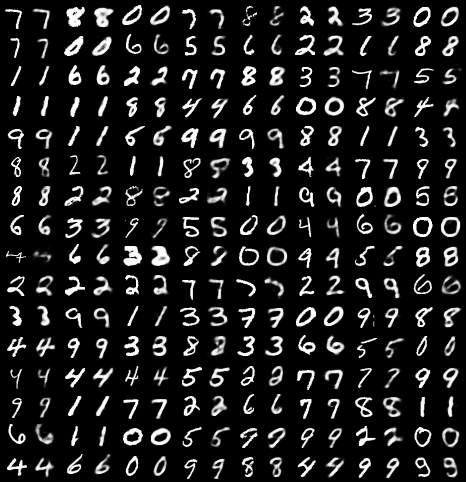 7 7 8 8 0 0 7 7 8 8 2 2 3 3 0 0
7 7 0 0 6 6 5 5 6 6 2 2 1 1 8 8
1 1 6 6 2 2 7 7 8 8 3 3 7 7 5 5
1 1 1 1 8 8 4 4 6 6 0 0 8 8 4 4
9 9 1 1 5 6 9 9 9 9 8 8 1 1 3 3
8 8 2 2 1 1 8 5 3 3 4 4 7 7 9 9
8 8 2 2 8 8 2 2 1 1 9 9 0 0 5 6
6 6 3 3 9 9 5 5 0 0 4 4 6 6 0 0
4 6 6 3 3 8 8 0 0 9 9 5 5 8 8
2 2 2 2 2 2 7 7 7 2 2 9 9 6 6
3 3 9 9 1 1 3 3 7 7 0 0 9 9 8 8
4 4 9 9 3 3 8 8 3 3 6 6 5 5 0 0
4 4 4 4 4 4 5 5 2 2 7 7 7 7 9 9
9 9 1 1 7 7 2 2 6 6 7 7 8 8 1 1
6 6 1 1 0 0 5 5 9 9 9 9 2 2 0 0
4 4 6 6 0 0 9 9 8 8 4 4 9 9 9 9